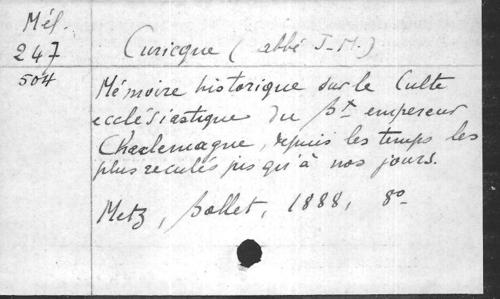 Mél.
247
504
Curicque (abbé J-M.)
Mémoire historique sur le Culte
ecclésiastique du Bt empereur
Charlemagne, depuis les temps les
plus reculés jusqu'à nos jours.
Metz, Ballet, 1888, 8o